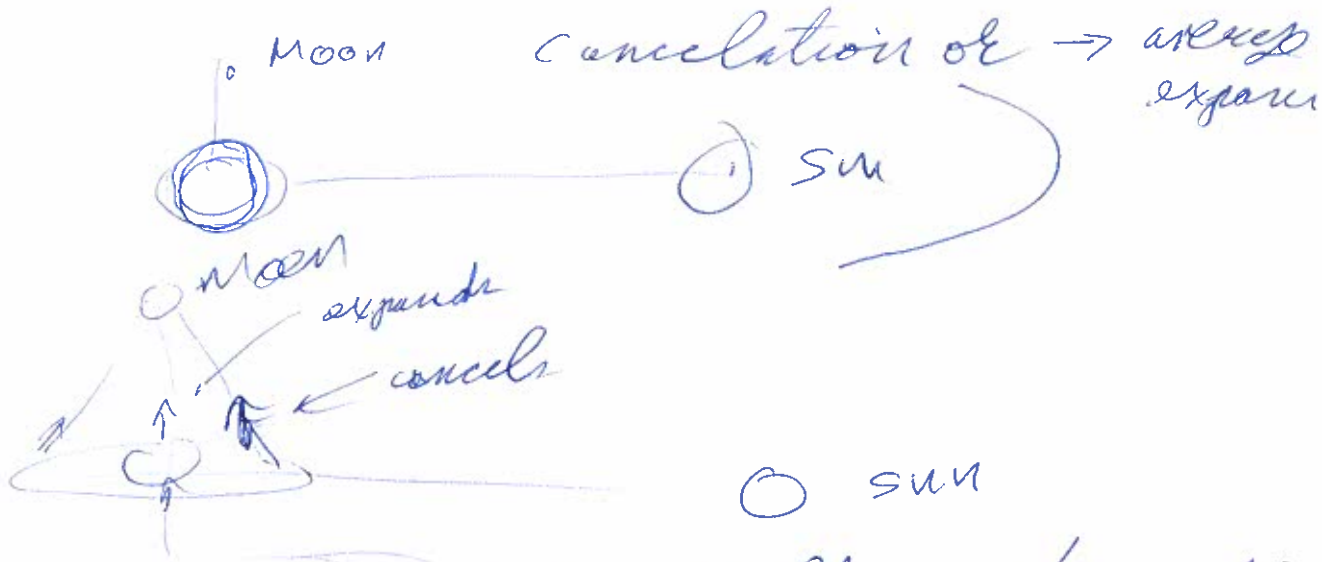 Moon
Cancelation or →
Sun
Moon
expands
cancels
Sun